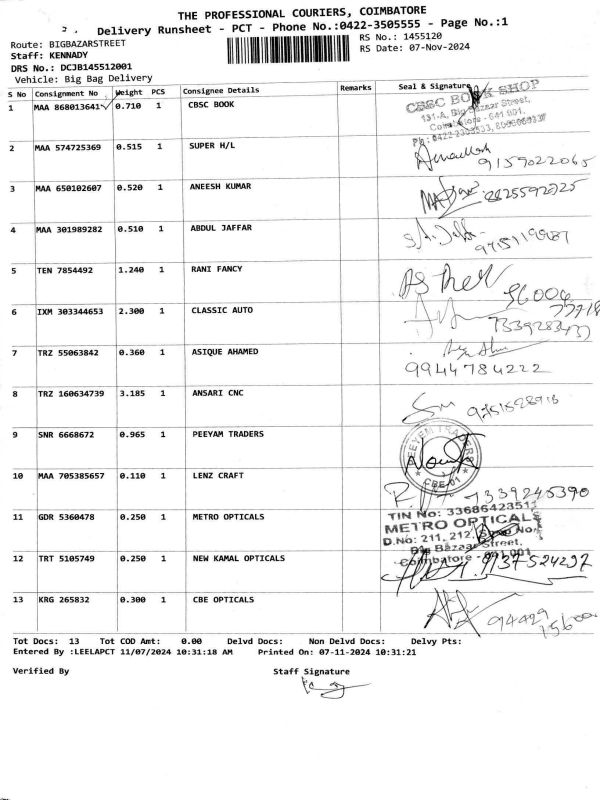 THE PROFESSIONAL COURIERS, COIMBATORE
Delivery Runsheet - PCT - Phone No.:0422-3505555 - Page No.:1
Route: BIGBAZARSTREET
RS No.: 1455120
Staff: KENNADY
RS Date: 07-Nov-2024
DRS No.: DCJB145512001
Vehicle: Big Bag Delivery
S No Consignment No Weight PCS Consignee Details Remarks Seal & Signature
1 MAA 868013641 0.710 1 CBSC BOOK
CBSC BOOK SHOP
131-A, Big Bazaar Street,
Coimbatore - 641 001.
2 MAA 574725369 0.515 1 SUPER H/L
9159022065
3 MAA 650102607 0.520 1 ANEESH KUMAR
4 MAA 301989282 0.510 1 ABDUL JAFFAR
5 TEN 7854492 1.240 1 RANI FANCY
6 IXM 303344653 2.300 1 CLASSIC AUTO
7339283437
7 TRZ 55063842 0.360 1 ASIQUE AHAMED
9944784222
8 TRZ 160634739 3.185 1 ANSARI CNC
9751528918
9 SNR 6668672 0.965 1 PEEYAM TRADERS
PEEYEM TRADERS
CBE-01
10 MAA 705385657 0.110 1 LENZ CRAFT
7339245390
11 GDR 5360478 0.250 1 METRO OPTICALS
TIN No: 33686423511
METRO OPTICAL
D.No: 211, 212,
Big Bazaar Street,
Coimbatore - 641 001
12 TRT 5105749 0.250 1 NEW KAMAL OPTICALS
13 KRG 265832 0.300 1 CBE OPTICALS
94429
15600
Tot Docs: 13 Tot COD Amt: 0.00 Delvd Docs: Non Delvd Docs: Delvy Pts:
Entered By :LEELAPCT 11/07/2024 10:31:18 AM Printed On: 07-11-2024 10:31:21
Verified By Staff Signature